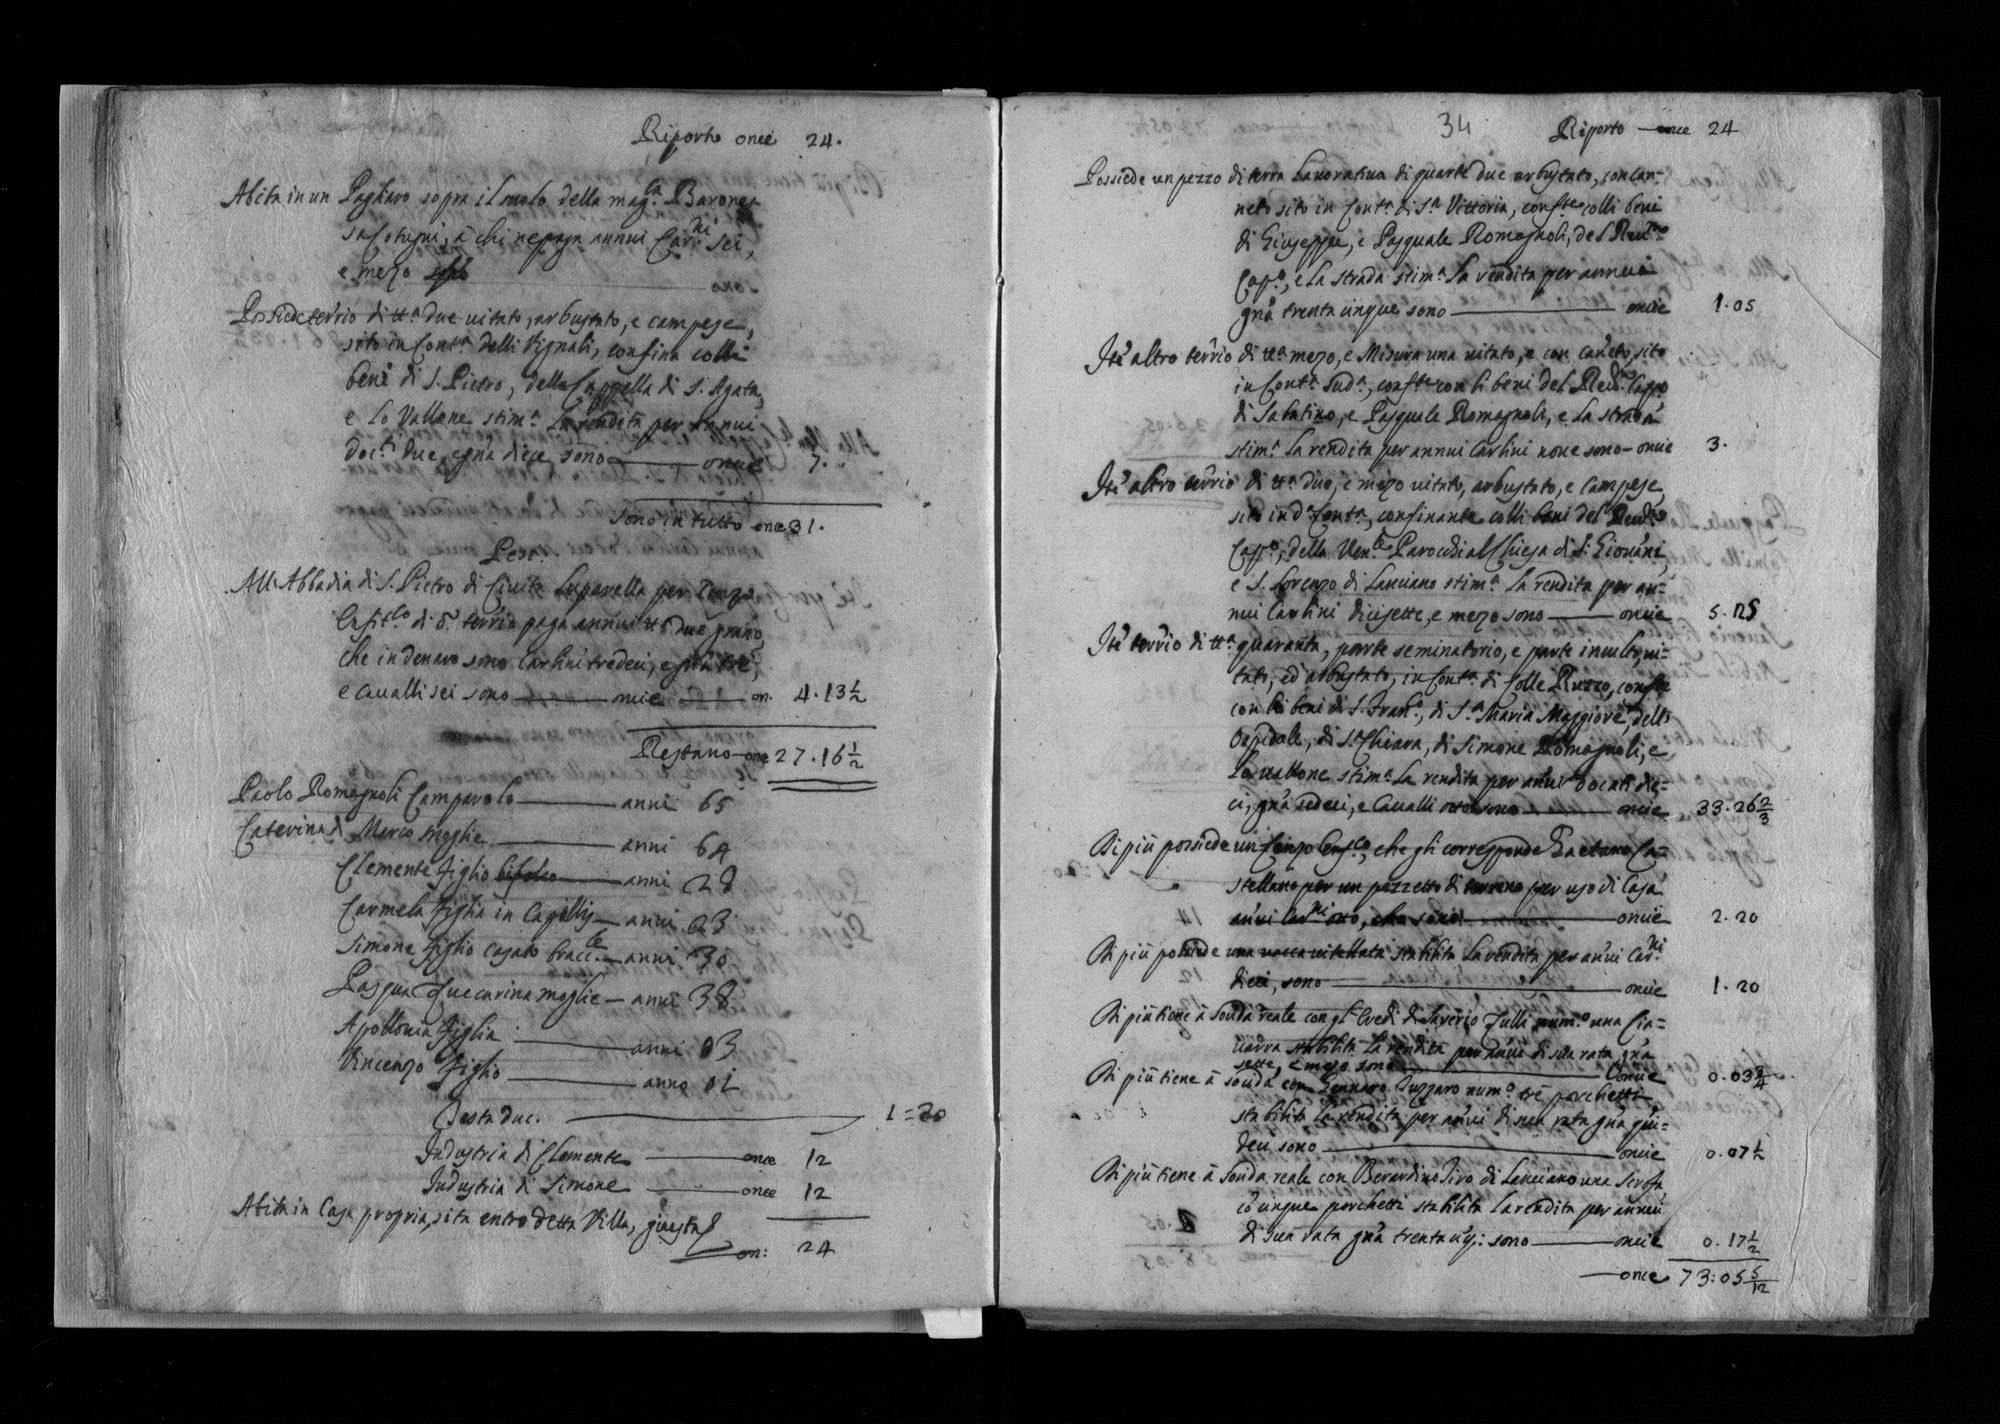 Riporto oncie 24.
Abita in un Pagliaro sopra il suolo della mag.ca Baronessa
Cotugni, à chi ne paga annui Car.ni sei,
e mezo
Possiede terr̃io di tt.a due vitato, arbustato, e campese,
sito in Cont.a delli Vignali, confina colli
beni di S. Pietro, della Cappella di S. Agata,
e lo Vallone stim.a la rendita per annui
doc.ti due, e gr̃a diece, sono oncie 7.
Sono in tutto oncie 31.
Pesi.
All'Abbadia di S. Pietro di Civita Luparella per Cenzo
di d.o terr̃io paga annui tt.a due grano,
che in denaro sono Carlini tredeci, e gr̃a tre,
e cavalli sei sono oncie on. 4.13 1/2
Restano oncie 27.16 1/2
Paolo Romagnoli Camparolo anni 65
Caterina di Marco moglie anni 64
Clemente figlio bifolco anni 28
Carmela figlia in Capillis anni 23
Simone figlio casato bracc.le anni 30
Pasqua moglie anni 38
Apollonia figlia anni 03
Vincenzo figlio anno 01
Testa duc. 1=20
Industria di Clemente oncie 12
Industria di Simone oncie 12
Abita in Casa propria, sita entro detta Villa, giusta
on: 24
34
Riporto oncie 24
Possiede un pezzo di terra lavorativa di quarte due arbustato, con can=
neto sito in Cont.a di S.a Vittoria, conf.te colli beni
di Giuseppe, e Pasquale Romagnoli, del Reud.o
Cap.o, e la strada stim.a la rendita per annui
gr̃a trenta cinque sono oncie 1.05
Itẽ altro terr̃io di tt.a mezo, e Misura una vitato, e con canẽto, sito
in Cont.a sud.a, conf.te con li beni del Reud.o Capp.o
di Sabatino, e Pasquale Romagnoli, e la strada
stim.a la rendita per annui Carlini nove sono oncie 3.
Itẽ altro terr̃io di tt.a due, e mezo vitato, arbustato, e campese,
sito in d.a Cont.a, confinante colli beni del Reud.o
Capp.o, della Ven.le Parocchial Chiesa di S. Giovãni,
e S. Lorenzo di Lanciano stim.a la rendita per an=
nui Carlini dicisette, e mezo sono oncie 5.25
Itẽ terr̃io di tt.a quaranta, parte seminatorio, e parte inculto, vi=
tato, ed arbustato, in Cont.a di Colle Ruzzo, conf.te
con li beni di S. Fran.o, di S.a Maria Maggiore, dell'
Ospidale, di S. Chiara, di Simone Romagnoli, e
lo vallone stim.a la rendita per añui docati die=
ci, gr̃a sedeci, e Cavalli otto sono oncie 33.26 2/3
Di più possiede un Cenzo, che gli corresponde Gaetano Ca=
stellano per un pezzetto di terreno per uso di Casa
añui Car.ni otto, che sono oncie 2.20
Di più possiede una vacca vitellata stabilita la rendita per añui Car.ni
dieci, sono oncie 1.20
Di più tiene à Soccida reale con gl'Eredi di Saverio Tulli num.o una Cia=
varra stabilita la rendita per añui di sua rata gr̃a
sette, e mezo sono oncie 0.03 3/4
Di più tiene à soccida con Gennaro num.o trè porchetti
stabilita la rendita per añui di sua rata gr̃a quin=
deci sono oncie 0.07 1/2
Di più tiene à Soccida reale con Berardino Sivo di Lanciano una Scrofa
cõ cinque porchetti stabilita la rendita per annui
di sua rata gr̃a trentacq: sono oncie 0.17 1/2
oncie 73:05 5/12